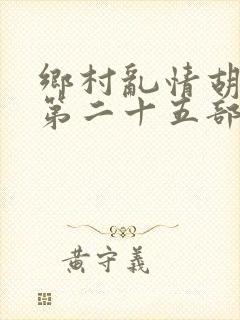 鄉村亂情胡
第二十五部
黃守義